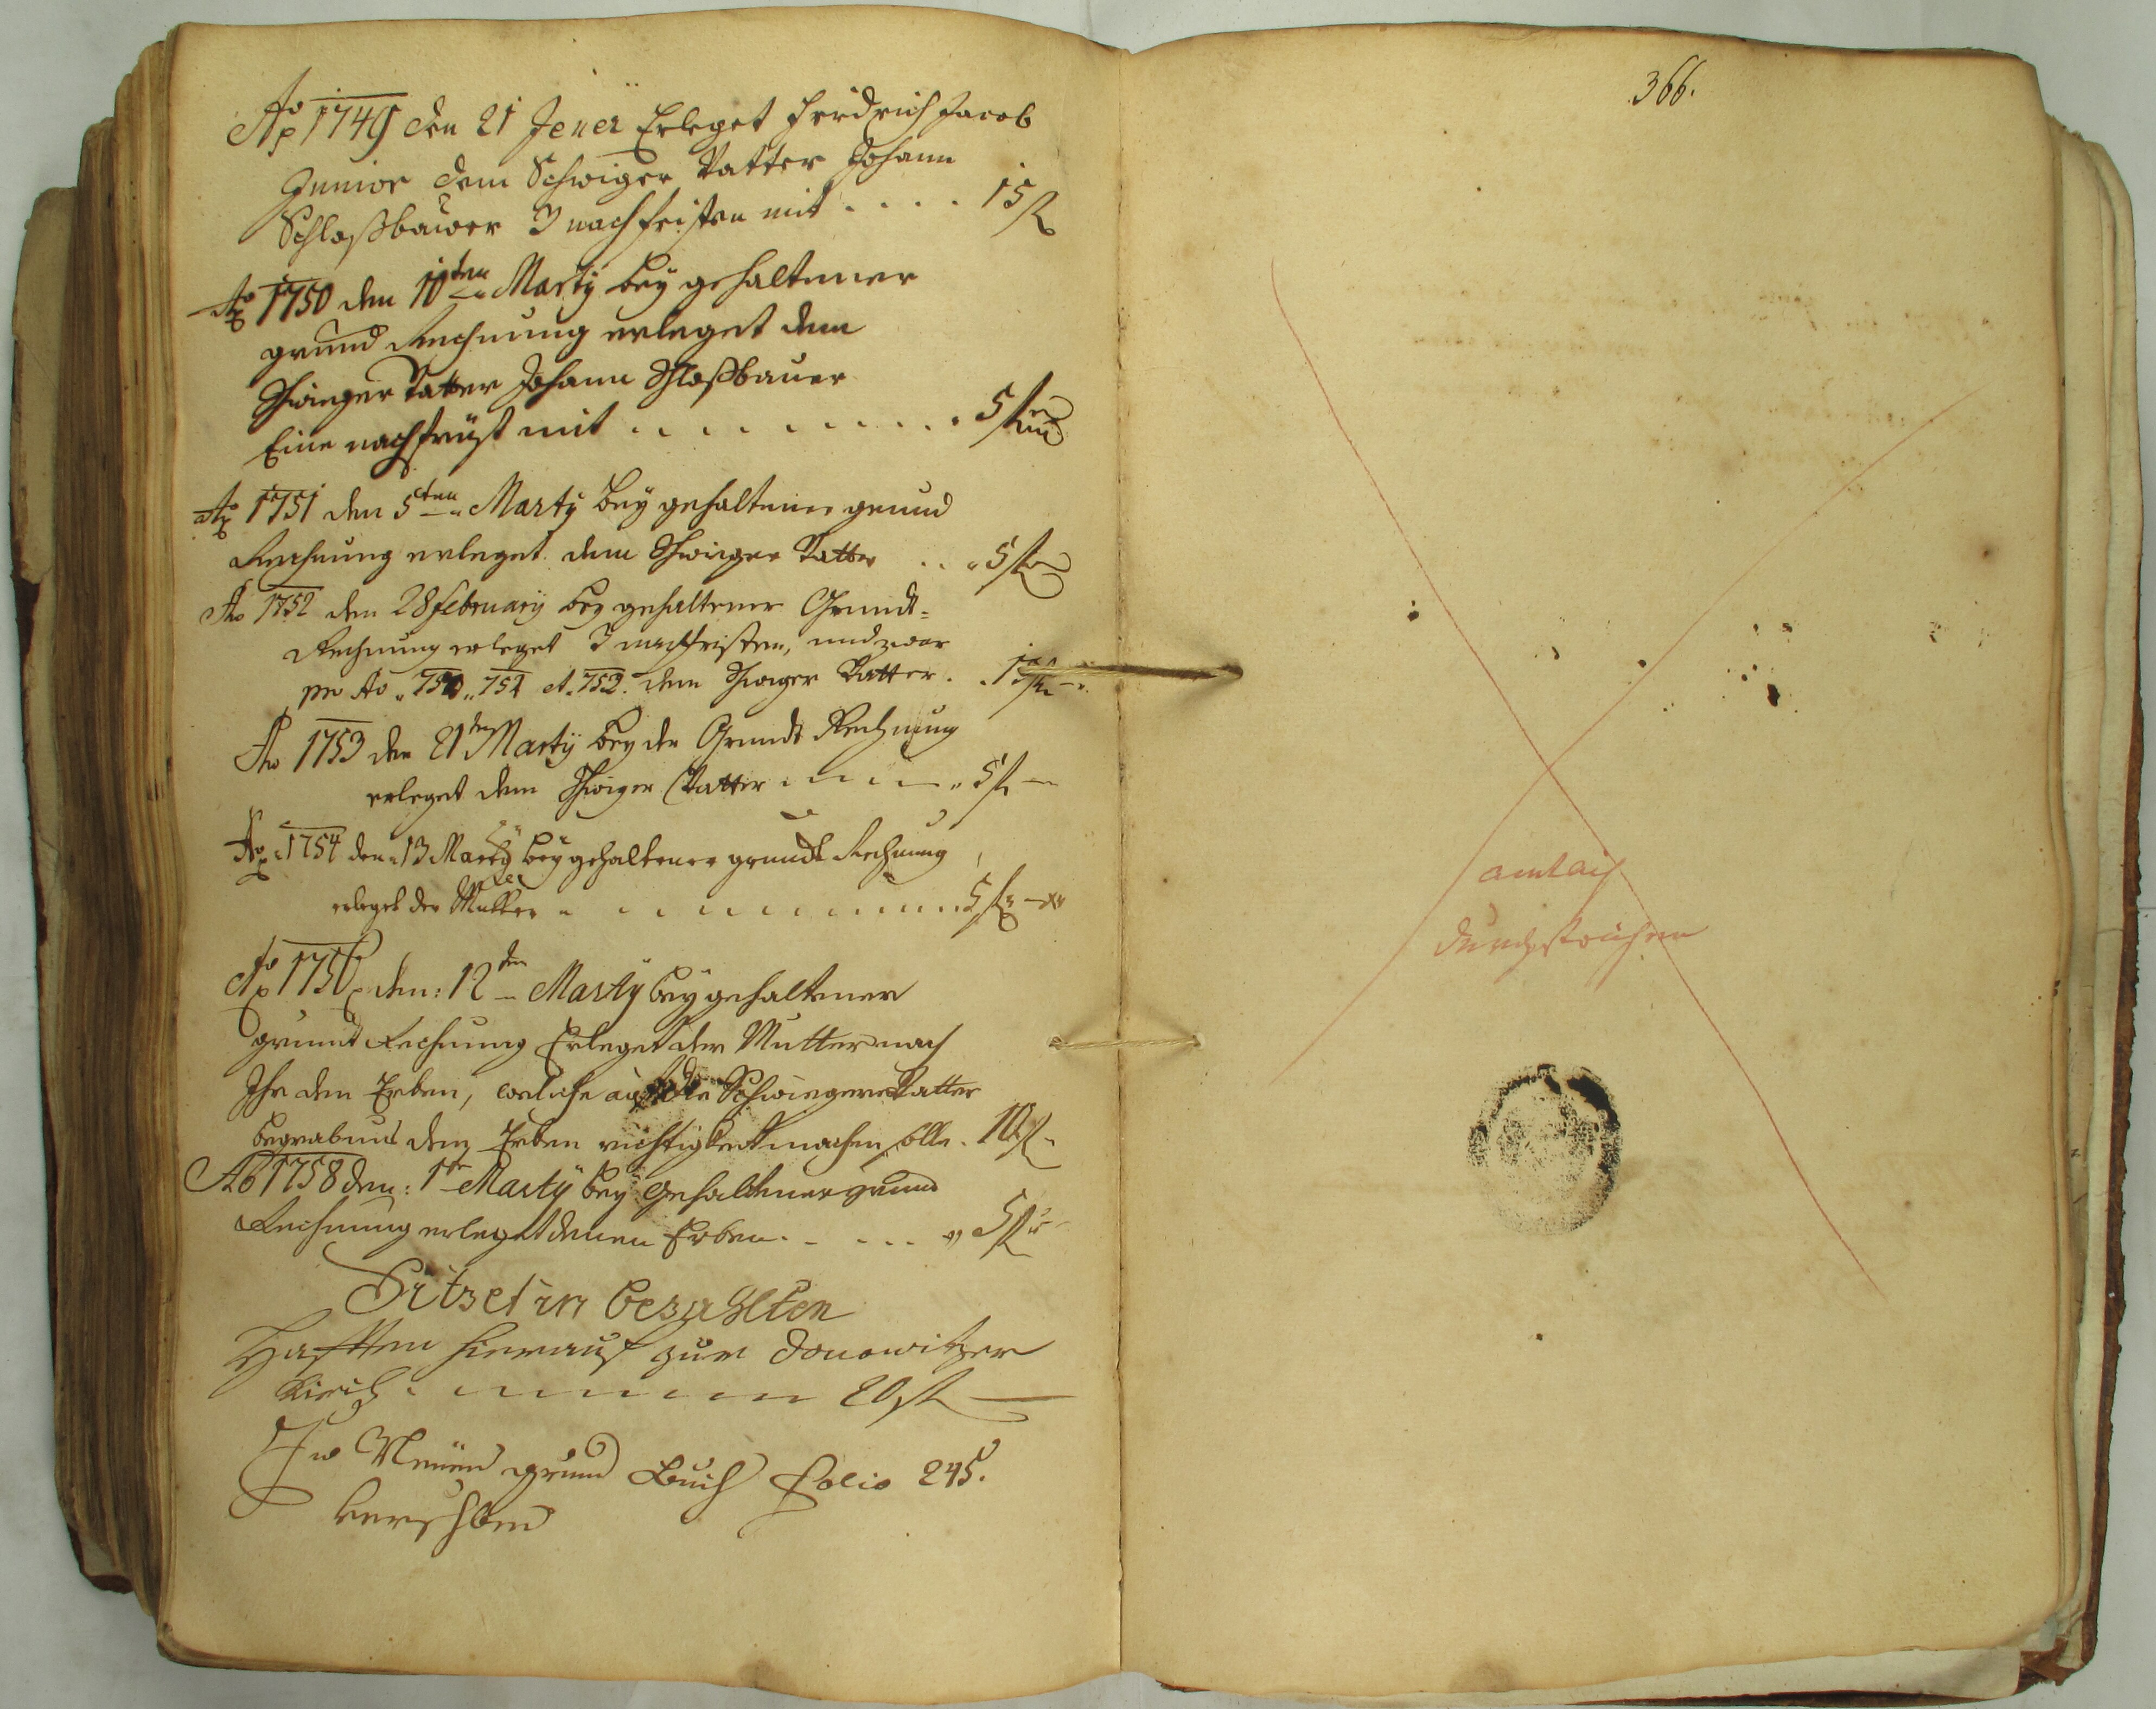 Ao 1749 den 21 Jener Erleget Fridrich Jacob
Junior dem Schwiger Vatter Johann
Schloßbauer 3 nachfristen mit . . . . 15 fl
Ao 1750 den 10ten Marty bey gehaltener
grund Rechnung erleget dem
Schwieger Vatter Johann Schloßbauer
Eine nachfrüst mit . . . . . . . . . 5 fl
Ao 1751 den 5ten Marty bey gehaltener grund
Rechnung erleget dem Schwieger Vatter . . . 5 fl
Ao 1752 den 28 February bey gehaltener Grundt-
Rechnung erleget 3 nachfristen, und zwar
pro Ao 750, 751 et 752 dem Schwiger Vatter . . 15 fl
Ao 1753 den 21ten Marty bey der Grundt Rechnung
erleget dem Schwiger Vatter . . . . . 5 fl
Ao 1754 den 13 Marty bey gehaltener grundt Rechnung
erleget der Mutter . . . . . . . . . 5 fl
Ao den: 12ten Marty bey gehaltener
grundt Rechnung Erleget der Mutter nach
Ihr den Erben, welche die Schwieger Vatter
begrabnus den Erben richtigkeit machen solle . 10 fl
Ao 1758 den: 1ten Marty bey gehaltener grund
Rechnung erleget denen Erben . . . . . 5 fl
Sitzet in bezahlten
Hafften hierauf zur
Kirch . . . . . . . 20 fl
Im Neuen grund Buch Folio 245.
366.
amtlich
durchstrichen